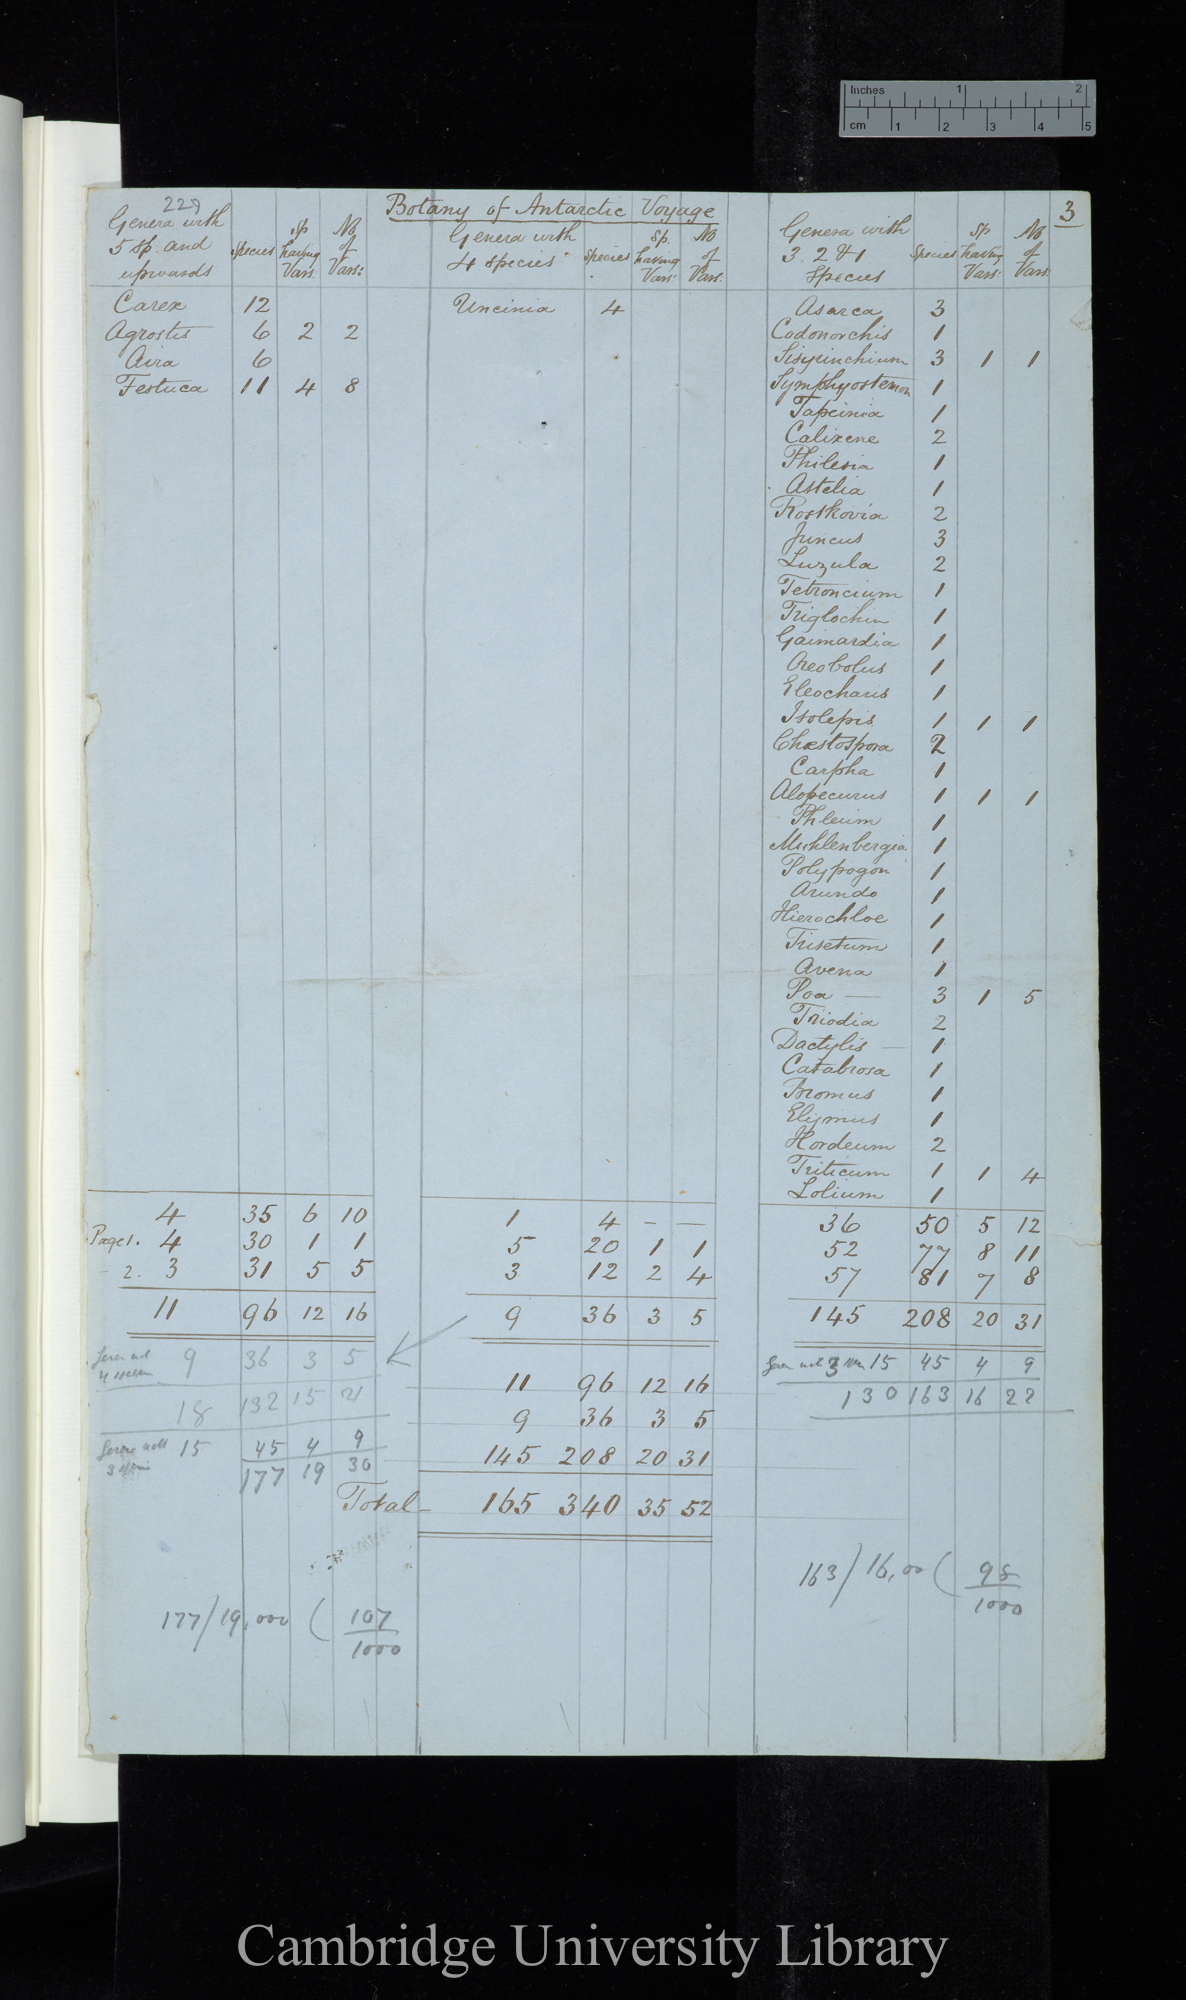 Inches 1 2
cm 1 2 3 4 5
229
Botany of Antarctic Voyage
3
Genera with 5 sp. and upwards
Species
Sp having Vars
No of Vars:
Genera with 4 species
Species
Sp. having Vars
No of Vars.
Genera with 3. 2 & 1 Species
Species
Sp having Vars
No of Vars
Carex 12
Agrostis 6 2 2
Aira 6
Festuca 11 4 8
Uncinia 4
Asarca 3
Codonorchis 1
Sisyrinchium 3 1 1
Symphyostemon 1
Tapeinia 1
Calixene 2
Philesia 1
Astelia 1
Rostkovia 2
Juncus 3
Luzula 2
Tetroncium 1
Triglochin 1
Gaimardia 1
Oreobolus 1
Eleocharis 1
Isolepis 1 1 1
Chæstospora 2
Carpha 1
Alopecurus 1 1 1
Phleum 1
Muhlenbergia 1
Polypogon 1
Arundo 1
Hierochloe 1
Trisetum 1
Avena 1
Poa — 3 1 5
Triodia 2
Dactylis — 1
Catabrosa 1
Bromus 1
Elymus 1
Hordeum 2
Triticum 1 1 4
Lolium 1
4 35 6 10
Page 1. 4 30 1 1
- 2. 3 31 5 5
11 96 12 16
9 36 3 5
18 132 15 21
15 45 4 9
177 19 30
1 4 - —
5 20 1 1
3 12 2 4
9 36 3 5
11 96 12 16
9 36 3 5
145 208 20 31
Total— 165 340 35 52
36 50 5 12
52 77 8 11
57 81 7 8
145 208 20 31
15 45 4 9
130 163 16 22
163/16,00( 98
1000
177/19,000 ( 107
1000
Cambridge University Library